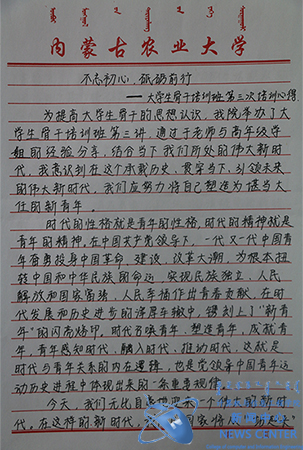 内蒙古农业大学
不忘初心，砥砺前行
——大学生骨干培训班第三次培训心得
为提高大学生骨干的思想认识，我院举办了大
学生骨干培训班第三讲，通过于老师与高年级学
姐的经验分享，结合当下我们所处的伟大新时
代，我意识到在这个承载历史、贯穿当下、引领未来
的伟大新时代，我们应努力将自己塑造为堪当大
任的新青年。
时代的性格就是青年的性格，时代的精神就是
青年的精神。在中国共产党领导下，一代又一代中国青
年奋勇投身中国革命、建设、改革大潮，为根本扭
转中国和中华民族的命运，实现民族独立、人民
解放和国家富强、人民幸福作出青春贡献，在时
代发展和历史进步的滚滚车辙中，镌刻上了“新青
年”的闪亮烙印。时代召唤青年，塑造青年，成就青
年，青年感知时代，融入时代，推动时代，这就是
时代与青年关系的内在逻辑，也是党领导中国青年运
动历史进程中体现出来的一条重要规律。
今天，我们无比自豪地迎来一个伟大的新时
代。在这样的新时代，国家将从
NEWS CENTER